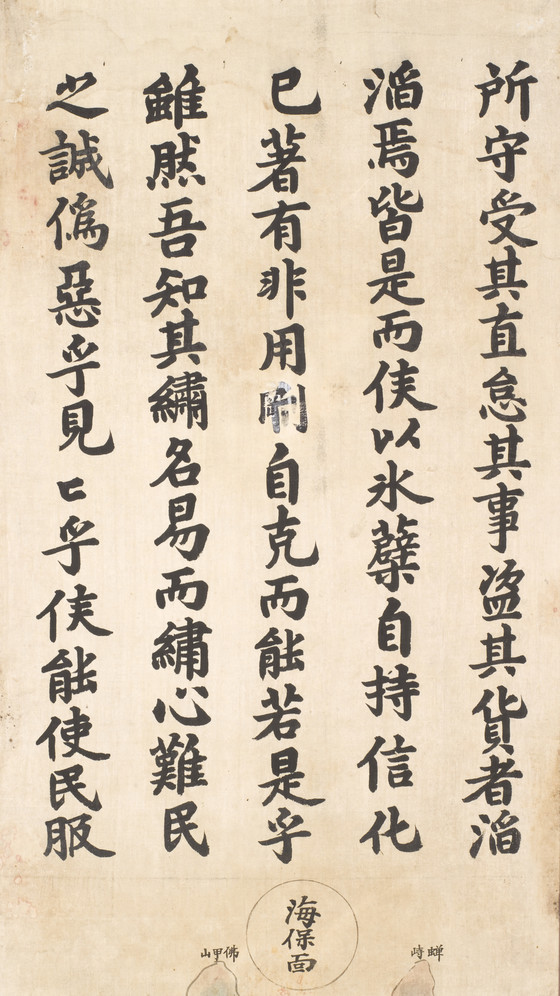 所守受其直怠其事盜其貨者滔
滔焉皆是而侯以氷蘗自持信化
已著有非用剛自克而能若是乎
雖然吾知其繡名易而繡心難民
之誠僞惡乎見匕乎侯能使民服
蝉峙
海保面
佛甲山